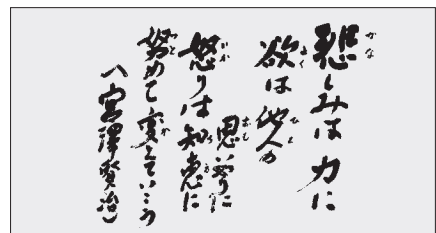 悲しみは 力に
欲は 他人の
思
怒りは 知恵に
努めて変えていこう
(宮澤賢治)